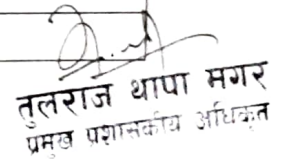 तुलराज थापा मगर
प्रमुख प्रशासकीय अधिकृत